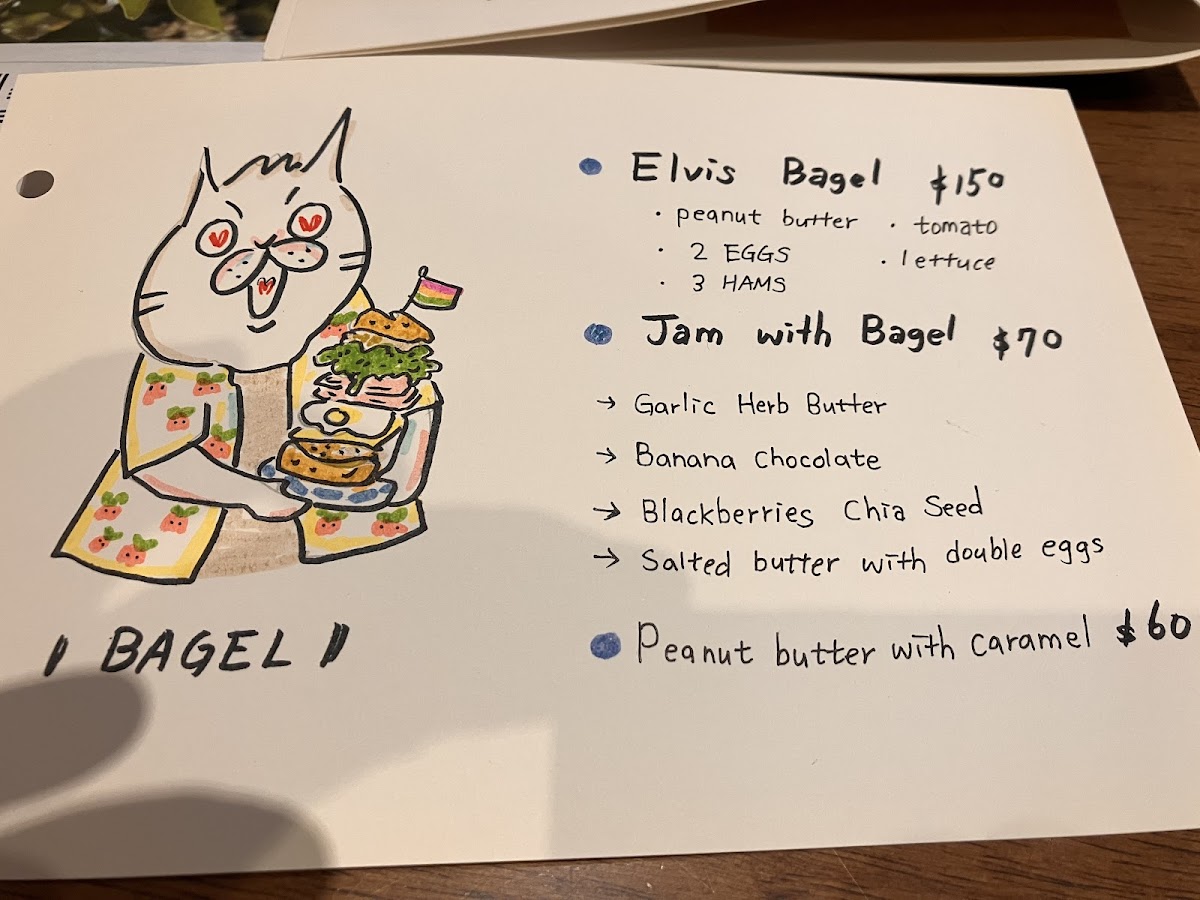 Elvis Bagel $150
· peanut butter · tomato
· 2 EGGS · lettuce
· 3 HAMS
Jam with Bagel $70
→ Garlic Herb Butter
→ Banana Chocolate
→ Blackberries Chia Seed
→ Salted butter with double eggs
Peanut butter with caramel $60
BAGEL